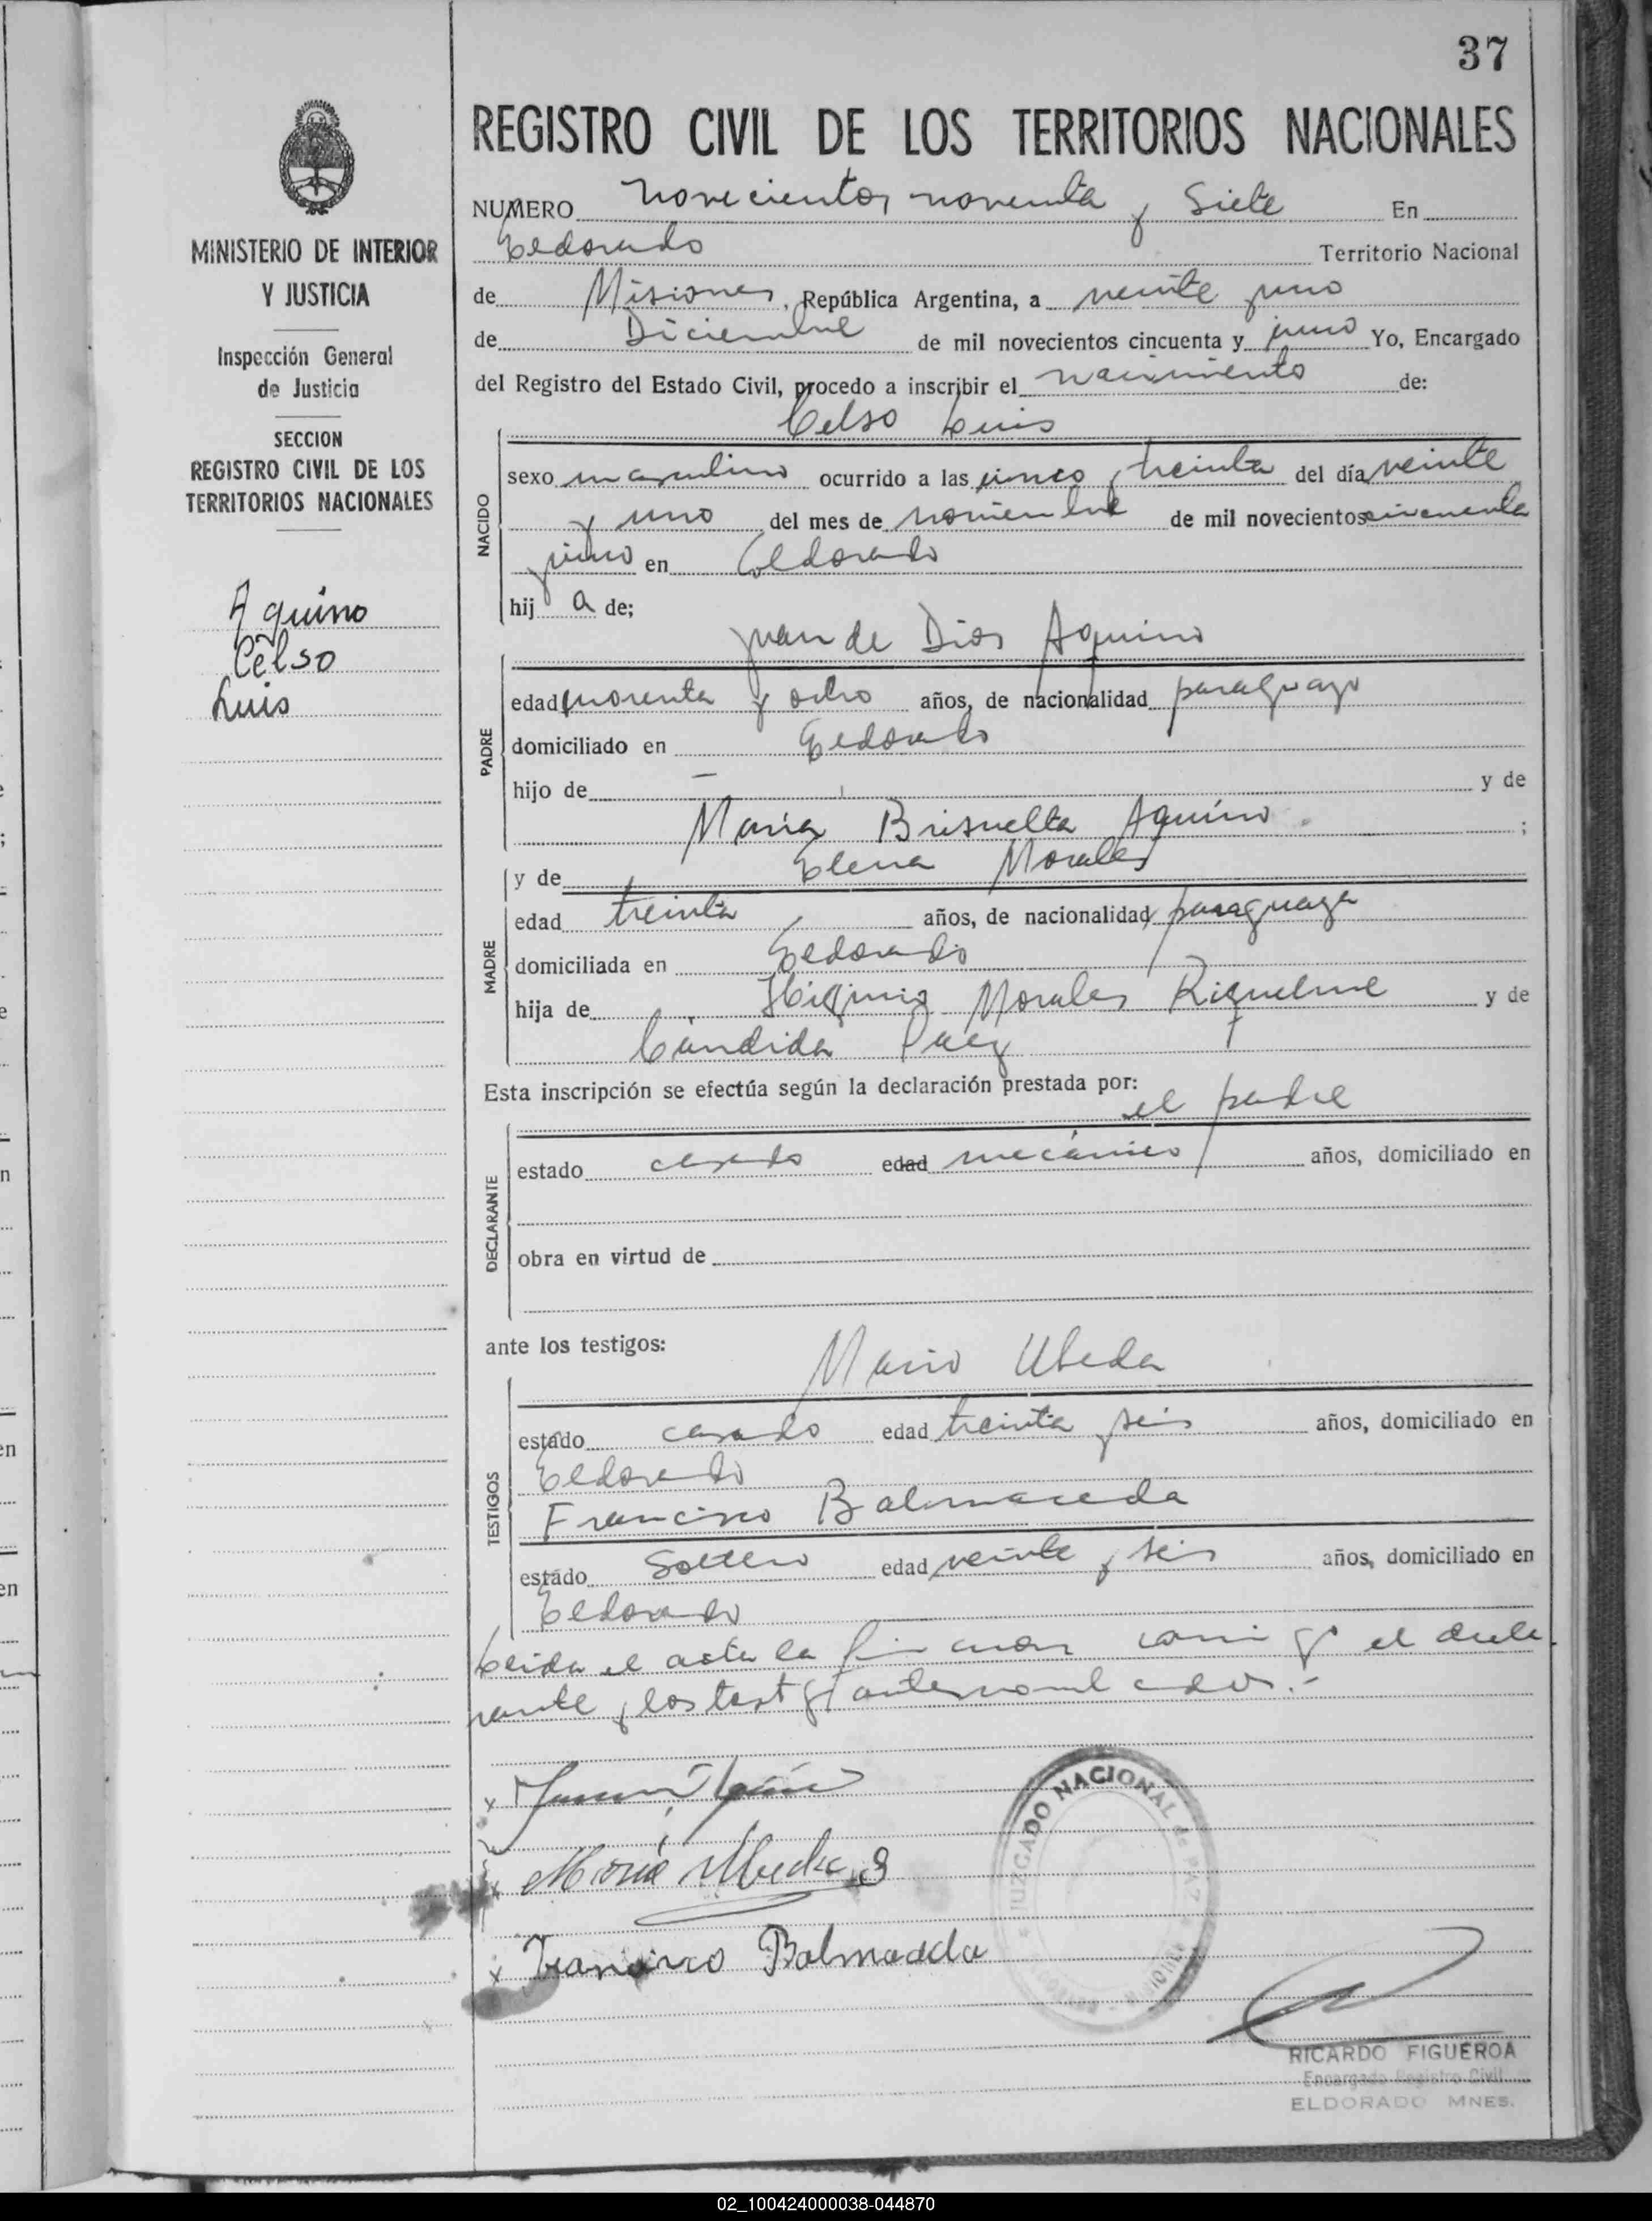 37
REGISTRO CIVIL DE LOS TERRITORIOS NACIONALES
MINISTERIO DE INTERIOR
Y JUSTICIA
Inspección General
de Justicia
SECCION
REGISTRO CIVIL DE LOS
TERRITORIOS NACIONALES
Aquino
Celso
Luis
NUMERO novecientos noventa y Siete En
Eldorado Territorio Nacional
de Misiones, República Argentina, a veinte y uno
de Diciembre de mil novecientos cincuenta y uno Yo, Encargado
del Registro del Estado Civil, procedo a inscribir el nacimiento de:
Celso Luis
NACIDO
sexo masculino ocurrido a las cinco y treinta del día veinte
y uno del mes de noviembre de mil novecientos cincuenta
y uno en Eldorado
hij a de;
Juan de Dios Aquino
PADRE
edad cuarenta y ocho años, de nacionalidad paraguayo
domiciliado en Eldorado
hijo de — y de
María Brisuella Aquino. ;
y de Elena Morales
MADRE
edad treinta años, de nacionalidad paraguaya
domiciliada en Eldorado
hija de Higinio Morales Riquelme y de
Cándida Paez
Esta inscripción se efectúa según la declaración prestada por:
el padre
DECLARANTE
estado casado edad mecánico años, domiciliado en
obra en virtud de
ante los testigos:
Mario Ubeda
TESTIGOS
estado casado edad treinta y seis años, domiciliado en
Eldorado
Francisco Balmaceda
estado Soltero edad veinte y seis años, domiciliado en
Eldorado
Leida el acta la firman conmigo el decla
rante y los testg antes nombrados.-
x
x Mario Ubeda
x Francisco Balmaceda
JUZGADO NACIONAL de PAZ
RICARDO FIGUEROA
Encargado Registro Civil
ELDORADO MNES.
02_100424000038-044870